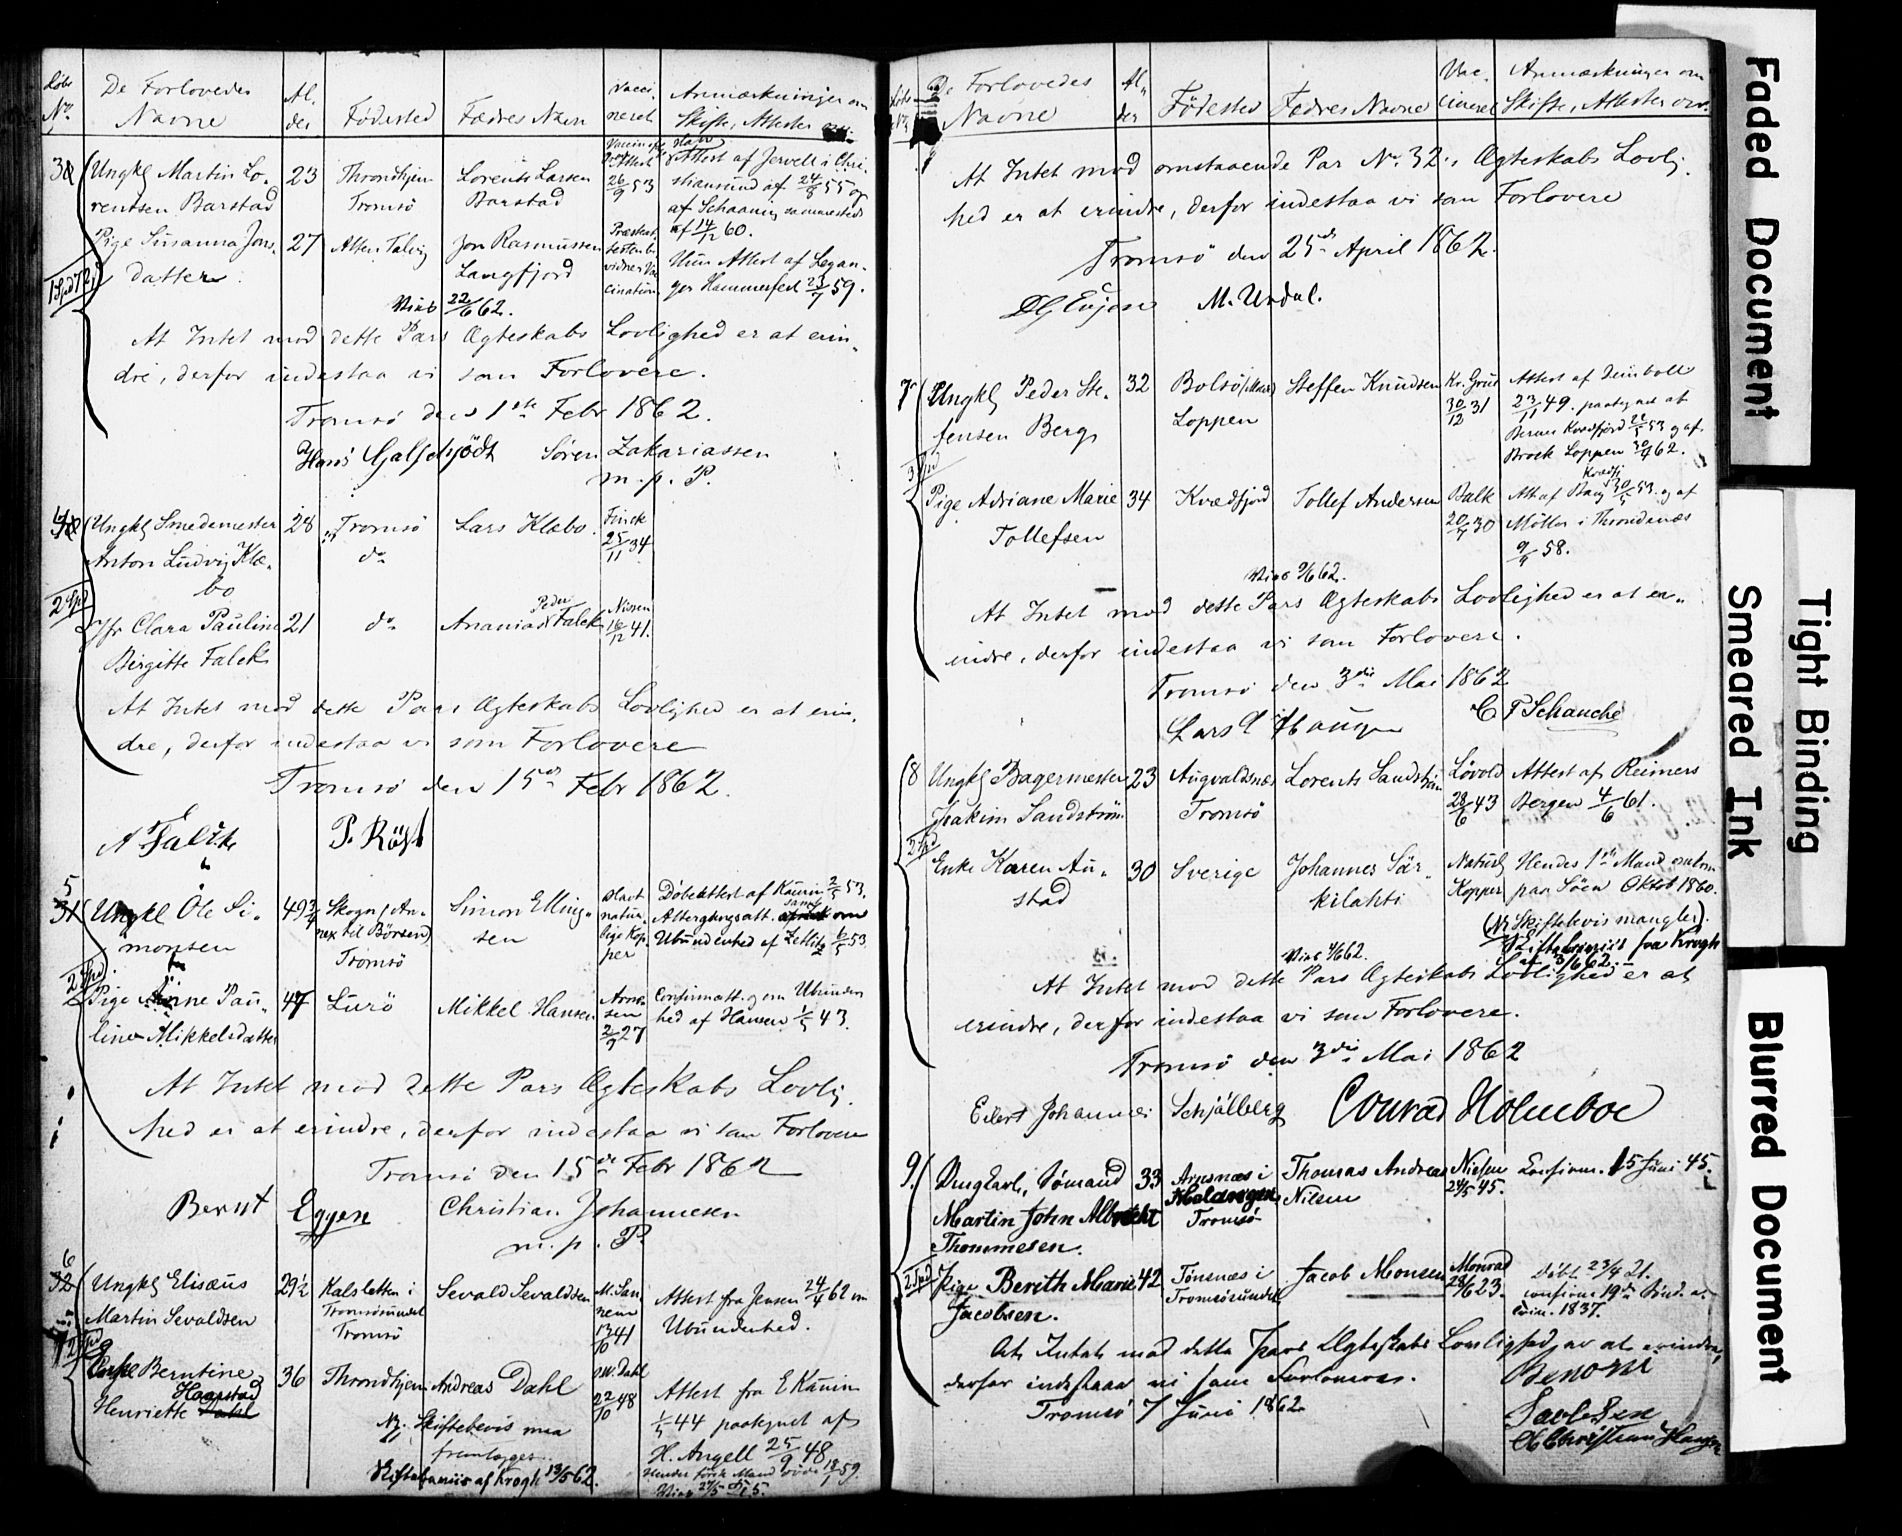 Løbe No. De Forlovedes Navne Al- der Fødested Fædres Navn Vacci- neret Anmærkninger om Skifte, Attester
3 Ungkl Martin Lo-
rentsen Barstad
23
Throndhjem
Tromsö
Lorents Larsen
Barstad
26/9 53
Attest af Jervell i Chri-
stiansund af 24/8 55 og
af Schaaning sammesteds
af 14/12 60.
Pige Susanna Jons-
datter
27
Alten Talvig
Jon Rasmussen
Langfjord
Hun Attest af Legan-
ger Hammerfest 23/7 59.
Viet 22/6 62.
At Intet mod dette Pars Ægteskabs Lovlighed er at erin-
dre, derfor indestaa vi som Forlovere.
Tromsö den 1ste Febr 1862.
Hans Søren Zakariassen
m. p. P.
4 Ungkl Smedemester
Anton Ludvig Klæ-
bo
28
Tromsö
do
Lars Klæbo
Finck
25/11 34
2 Spd
Jfr Clara Pauline
Birgitte Falck
21
do
Ananias Peder Falck
Nissen
16/12 41.
At Intet mod dette Pars Ægteskabs Lovlighed er at erin-
dre, derfor indestaa vi som Forlovere
Tromsö den 15de Febr 1862.
A Falck P. Röst
5 Ungkl Ole Si-
monsen
49 3/4
Skogn (An-
nex til Börsen)
Tromsö
Simon Elling-
sen
havt
natur-
lige Kop-
per
Döbeattest af Kaurin 2/5 53.
Altergangsatt. samt om
Ubundenhed af Zetlitz 6/5 53.
2 Spd.
Pige Anne Pau-
line Mikkelsdatter
47
Lurö
Mikkel Hansen
2/9 27
Confirmatt. og om Ubunden
hed af Hansen 1/5 43.
At Intet mod dette Pars Ægteskabs Lovlig-
hed er at erindre, derfor indestaa vi som Forlovere
Tromsö den 15de Febr 1862
Bernt Eggen Christian Johannesen
m. p. P.
6 Ungkl Elisæus
Martin Sevaldsen
29 1/2
Kalsletten i
Tromsösundet
Tromsö
Sevald Sevaldsen
13/10 41
Attest fra Jensen 24/4 62 om
Ubundenhed.
Enke Berntine
Henriette Haarstad Dahl
36
Throndhjem
Andreas Dahl
O.W. Dahl
22/10 48
Attest fra E Kaurin
1/5 44 paategnet af
H. Angell 25/9 48
NB. Skiftebevis maa
fremlægges.
Skiftebeviis af Krogh 13/5 62.
Hendes förste Mand döde 18/1 59.
De Forlovedes Navne Al- der Födested Fædres Navne Vac- cineret Anmærkninger om Skifte, Attester osv.
At Intet mod omstaaende Par No 32's Ægteskabs Lovlig-
hed er at erindre, derfor indestaa vi som Forlovere
Tromsö den 25de April 1862.
M. Urdal.
7 Ungkl Peder Ste-
fensen Berg
32
Bolsö
Loppen
Steffen Knudsen
30/12 31
Attest af Deinboll
23/11 49. paategnet af
Kvædfjord 22/5 53 og af
Brock Loppen 30/4 62.
3 Spd
Pige Adriane Marie
Tollefsen
34
Kvædfjord
Tollef Andersen
Balk
20/7 30
Att af Kvædfj 30/5 53. og af
Möller i Throndenæs
9/9 58.
Viet 9/6 62.
At Intet mod dette Pars Ægteskabs Lovlighed er at er-
indre, derfor indestaa vi som Forlovere.
Tromsö den 3die Mai 1862
Lars Haugen C P Schanche
8 Ungkl Bagermester
Joakim Sandström
23
Augvaldsnæs
Tromsö
Lorents Sandström
Lövold
28/6 43
Attest af Reimers
Bergen 4/6 61.
2 Spd
Enke Karen Au-
stad
30
Sverige
Johannes Sär-
kilahti
Naturl
Kopper
Hendes 1ste Mand omkom
paa Söen Oktob 1860.
(NB Skiftebevis mangler).
Skiftebeviis fra Krogh
af 3/6 62.
Viet 4/6 62.
At Intet mod dette Pars Ægteskabs Lovlighed er at
erindre, derfor indestaa vi som Forlovere.
Tromsö den 3die Mai 1862
Eilert Johannes Schjälberg Conrad Holmboe
9. Ungkarl, Sømand
Martin John Albrecht
Thommesen.
33
Arnsnæs i
Malangen
Tromsö
Thomas Andreas
Nilsen
Nielsen
24/5 45.
Confirm. 15 Juni 45.
2 Spd
Pige Bereth Marie
Jacobsen.
42
Tönsnæs i
Tromsösundet
Jacob Monsen
Monrad
28/6 23.
Döbt 23/4 21.
confirm 19de Sönd. e.
Trin. 1837.
At Intet mod dette Pars Ægteskabs Lovlighed er at erindre,
derfor indestaar vi som Forlovere.
Tromsö 7 Juni 1862
Christian Hansen
Faded Document
Tight Binding
Smeared Ink
Blurred Document